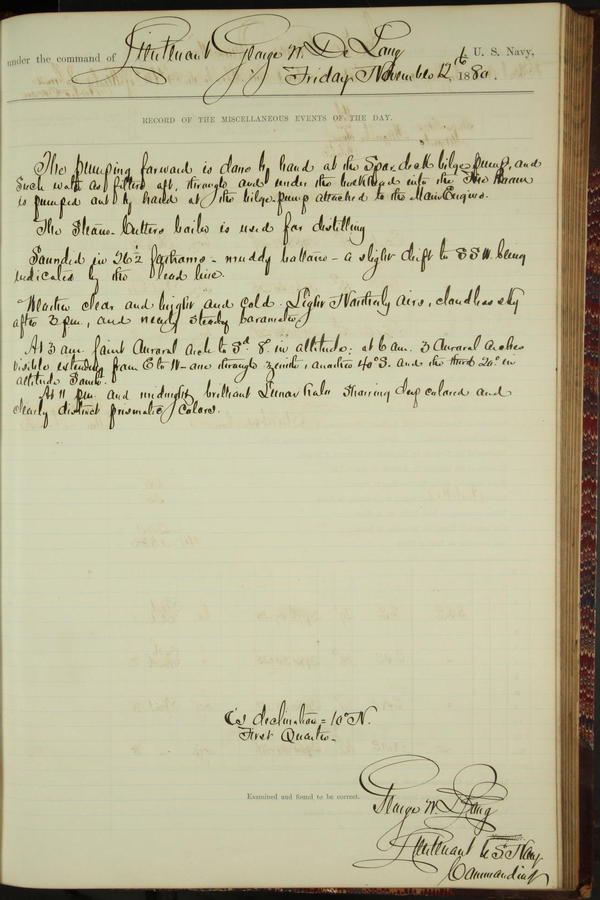 under the command of Lieutenant George W. De Long, U. S. Navy,
Friday, November 12th, 1880.
RECORD OF THE MISCELLANEOUS EVENTS OF THE DAY.
The pumping forward is done by hand at the Spar deck bilge pump, and
such water as filters aft, through and under the bulkhead into the Fire Room
is pumped out by hand at the bilge pump attached to the Main Engine.
The Steam-Cutters boiler is used for distilling
Sounded in 26½ fathoms - muddy bottom - a slight drift to SSW. being
indicated by the lead line.
Weather clear and bright and cold. Light Northerly airs, cloudless sky
after 3 pm., and nearly steady barometer.
At 3 am. faint Auroral arch to Sd 8° in altitude: at 6 am. 3 Auroral Arches
visible extending from E to W - one through zenith, another 40° S. and the third 20° in
altitude South.
At 11 pm and midnight, brilliant Lunar halo showing deep colored and
clearly distinct prismatic colors.
☾'s declination = 10° N.
First Quarter -
Examined and found to be correct.
George W. De Long
Lieutenant U.S. Navy
Commanding